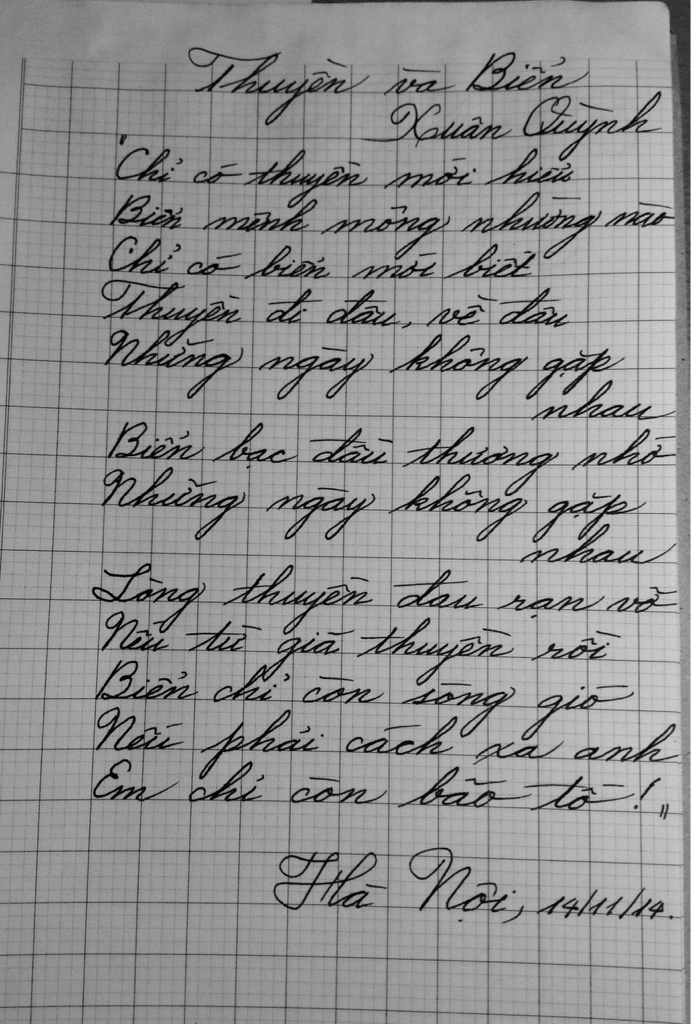 Thuyền và Biển
Xuân Quỳnh
"Chỉ có thuyền mới hiểu
Biển mênh mông nhường nào
Chỉ có biển mới biết
Thuyền đi đâu, về đâu
Những ngày không gặp
nhau
Biển bạc đầu thương nhớ
Những ngày không gặp
nhau
Lòng thuyền đau rạn vỡ
Nếu từ giã thuyền rồi
Biển chỉ còn sóng gió
Nếu phải cách xa anh
Em chỉ còn bão tố!"
Hà Nội, 14/11/14.